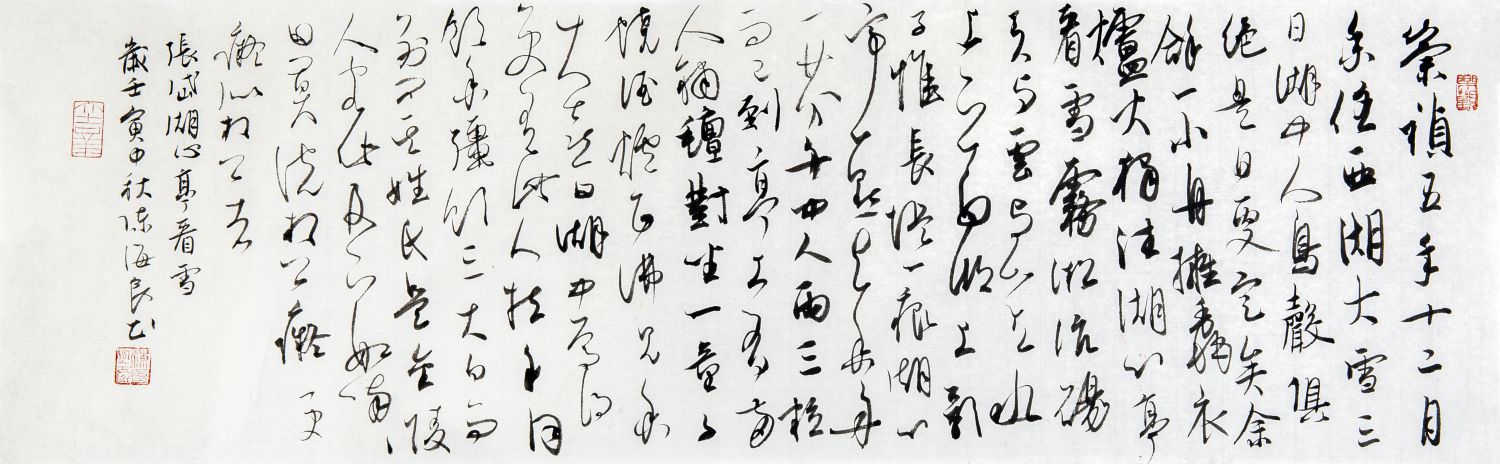 崇禎五年十二月
余住西湖大雪三
日湖中人鳥聲俱
絕是日更定矣余
拏一小舟擁毳衣
爐火獨往湖心亭
看雪霧淞沆碭
天與雲與山與水
上下一白湖上影
子惟長堤一痕湖心
亭一點與余舟
一芥舟中人兩三粒
而已到亭上有兩
人鋪氈對坐一童子
燒酒爐正沸見余
大喜曰湖中焉得
更有此人拉余同
飲余強飲三大白而
別問其姓氏是金陵
人客此及下船喃
曰莫說相公癡更
癡似相公者
張岱湖心亭看雪
歲壬寅中秋陳海良書